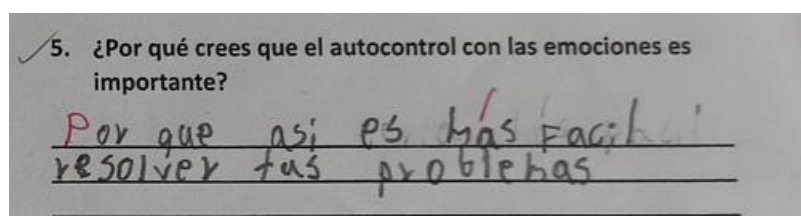 5. ¿Por qué crees que el autocontrol con las emociones es
importante?
Por que asi es más Facil
resolver tus problemas